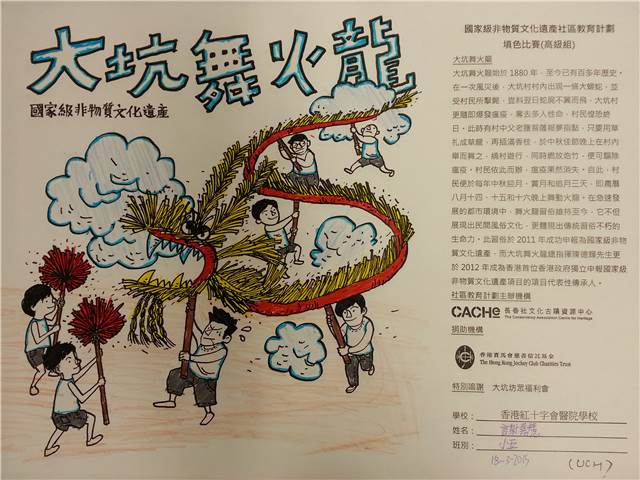 大坑舞火龍
國家級非物質文化遺產
國家級非物質文化遺產社區教育計劃
填色比賽(高級組)
大坑舞火龍
大坑舞火龍始於 1880 年，至今已有百多年歷史。
在一次風災後，大坑村村內出現一條大蟒蛇，並
受村民所擊斃，豈料翌日蛇屍不翼而飛，大坑村
更隨即爆發瘟疫，奪去多人性命，村民惶恐終
日。此時有村中父老獲菩薩報夢指點，只要用草
扎成草龍，再插滿香枝，於中秋佳節晚上在村內
舉而舞之，繞村遊行，同時燃放炮竹，便可驅除
瘟疫。村民依此而辦，瘟疫果然消失，自此，村
民便於每年中秋迎月、賞月和追月三天，即農曆
八月十四、十五和十六晚上舞動火龍。在急速發
展的都市環境中，舞火龍習俗維持至今，它不但
展現出民間風俗文化，更體現出傳統習俗不朽的
生命力。此習俗於 2011 年成功申報為國家級非物
質文化遺產，而大坑舞火龍總指揮陳德輝先生更
於 2012 年成為香港首位香港政府獨立申報國家級非
物質文化遺產項目的項目代表性傳承人。
社區教育計劃主辦機構
CACHe 長春社文化古蹟資源中心
The Conservancy Association Centre for Heritage
捐助機構
香港賽馬會慈善信託基金
The Hong Kong Jockey Club Charities Trust
特別鳴謝 大坑坊眾福利會
學校： 香港紅十字會醫院學校
姓名：
班別： 小五
18-3-2015
(UCH)